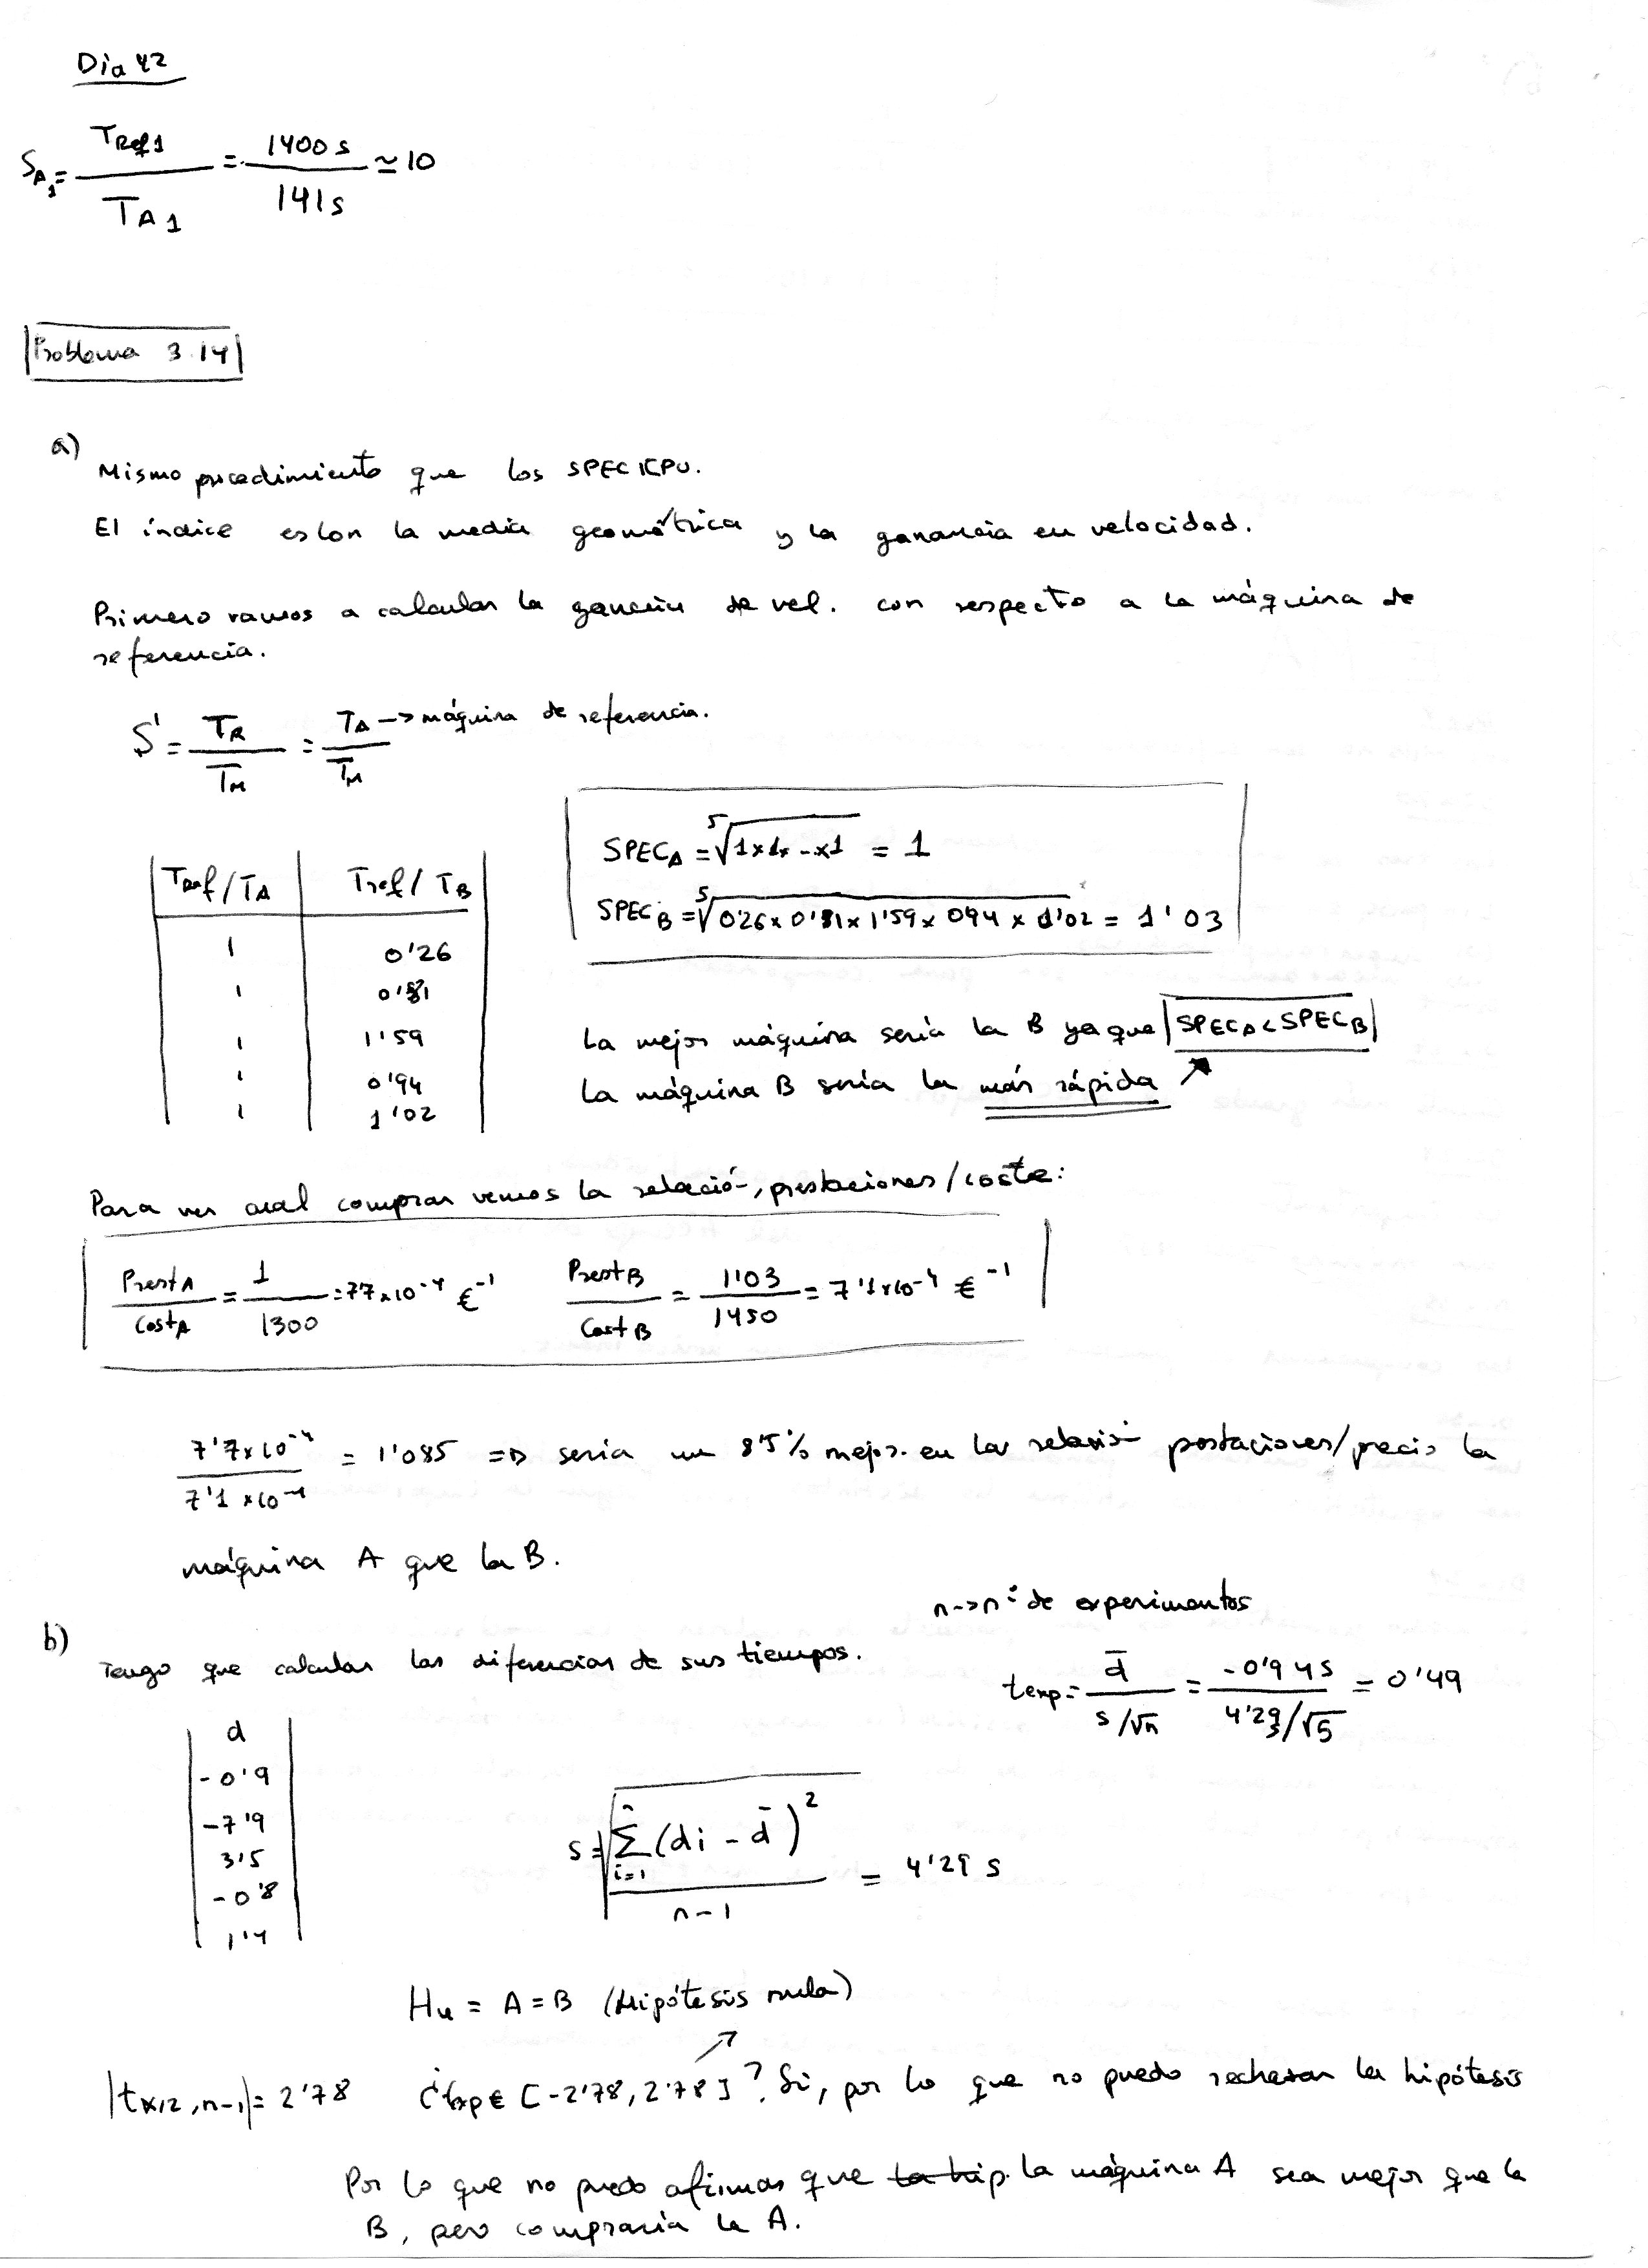 Dia 42
S_A1 = T_Ref1 / T_A1 = 1400 s / 141 s ≃ 10
Problema 3.14
a)
Mismo procedimiento que los SPEC CPU.
El índice es con la media geométrica y la ganancia en velocidad.
Primero vamos a calcular la ganancia de vel. con respecto a la máquina de
referencia.
S = T_R / T_M = T_A / T_M -> máquina de referencia.
SPEC_A = ⁵√(1x1x-x1) = 1
SPEC_B = ⁵√(0'26 x 0'81 x 1'59 x 0'94 x 1'02) = 1'03
Tref/T_A Tref/T_B
1 0'26
1 0'81
1 1'59
1 0'94
1 1'02
La mejor máquina sería la B ya que SPEC_A < SPEC_B
La máquina B sería la más rápida
Para ver cual comprar vemos la relación prestaciones/coste:
Prest_A / Cost_A = 1 / 1300 = 7'7x10⁻⁴ €⁻¹ Prest_B / Cost_B = 1'03 / 1450 = 7'1x10⁻⁴ €⁻¹
7'7x10⁻⁴ / 7'1x10⁻⁴ = 1'085 => sería un 8'5% mejor en la relación prestaciones/precio la
máquina A que la B.
b)
n -> nº de experimentos
Tengo que calcular las diferencias de sus tiempos.
texp = d̄ / (s/√n) = -0'94s / (4'29s/√5) = 0'49
d
-0'9
-7'9
3'5
-0'8
1'4
s = √(Σ_{i=1}^{n} (di - d̄)² / (n-1)) = 4'29 s
H_u = A = B (Hipótesis nula)
|t_α/2, n-1| = 2'78 ¿texp ∈ [-2'78, 2'78]? Si, por lo que no puedo rechazar la hipótesis
Por lo que no puedo afirmar que la hip. la máquina A sea mejor que la
B, pero compraría la A.